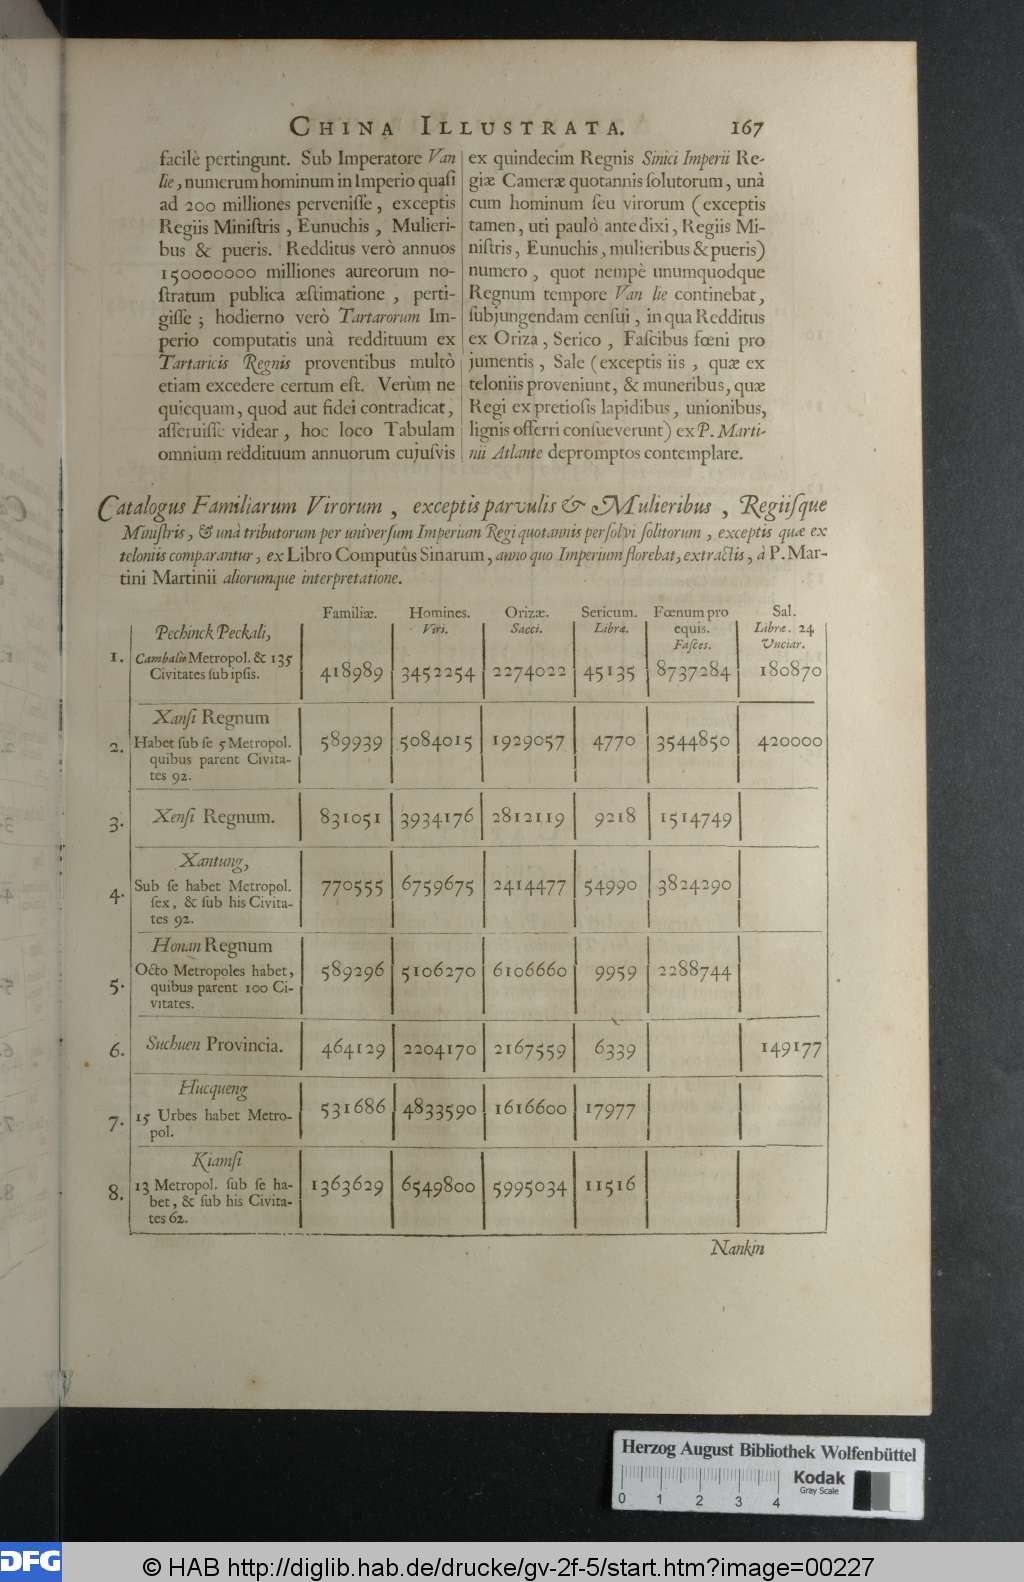 CHINA ILLUSTRATA. 167
facilè pertingunt. Sub Imperatore Van
lie, numerum hominum in Imperio quasi
ad 200 milliones pervenisse, exceptis
Regiis Ministris, Eunuchis, Mulieri-
bus & pueris. Redditus verò annuos
150000000 milliones aureorum no-
stratum publica æstimatione, perti-
gisse; hodierno verò Tartarorum Im-
perio computatis unà reddituum ex
Tartaricis Regnis proventibus multò
etiam excedere certum est. Verùm ne
quicquam, quod aut fidei contradicat,
asseruisse videar, hoc loco Tabulam
omnium reddituum annuorum cujusvis
ex quindecim Regnis Sinici Imperii Re-
giæ Cameræ quotannis solutorum, unà
cum hominum seu virorum (exceptis
tamen, uti paulò ante dixi, Regiis Mi-
nistris, Eunuchis, mulieribus & pueris)
numero, quot nempè unumquodque
Regnum tempore Van lie continebat,
subjungendam censui, in qua Redditus
ex Oriza, Serico, Fascibus fœni pro
jumentis, Sale (exceptis iis, quæ ex
teloniis proveniunt, & muneribus, quæ
Regi ex pretiosis lapidibus, unionibus,
lignis offerri consueverunt) ex P. Marti-
nii Atlante depromptos contemplare.
Catalogus Familiarum Virorum, exceptis parvulis & Mulieribus, Regiisque
Ministris, & unà tributorum per universum Imperium Regi quotannis persolvi solitorum, exceptis quæ ex
teloniis comparantur, ex Libro Computûs Sinarum, anno quo Imperium florebat, extractis, à P. Mar-
tini Martinii aliorumque interpretatione.
Familiæ. Homines. Orizæ. Sericum. Fœnum pro Sal.
Viri. Sacci. Libræ. equis. Libræ. 24
Fasces. Unciar.
Pechinck Peckali,
1. Cambalu Metropol. & 135
Civitates sub ipsis. 418989 3452254 2274022 45135 8737284 180870
Xansi Regnum
2. Habet sub se 5 Metropol. 589939 5084015 1929057 4770 3544850 420000
quibus parent Civita-
tes 92.
3. Xensi Regnum. 831051 3934176 2812119 9218 1514749
Xantung,
4. Sub se habet Metropol. 770555 6759675 2414477 54990 3824290
sex, & sub his Civita-
tes 92.
Honan Regnum
5. Octo Metropoles habet, 589296 5106270 6106660 9959 2288744
quibus parent 100 Ci-
vitates.
6. Suchuen Provincia. 464129 2204170 2167559 6339 149177
Hucqueng
7. 15 Urbes habet Metro- 531686 4833590 1616600 17977
pol.
Kiamsi
8. 13 Metropol. sub se ha- 1363629 6549800 5995034 11516
bet, & sub his Civita-
tes 62.
Nankin
Herzog August Bibliothek Wolfenbüttel
0 1 2 3 4
Kodak
Gray Scale
DFG
© HAB http://diglib.hab.de/drucke/gv-2f-5/start.htm?image=00227